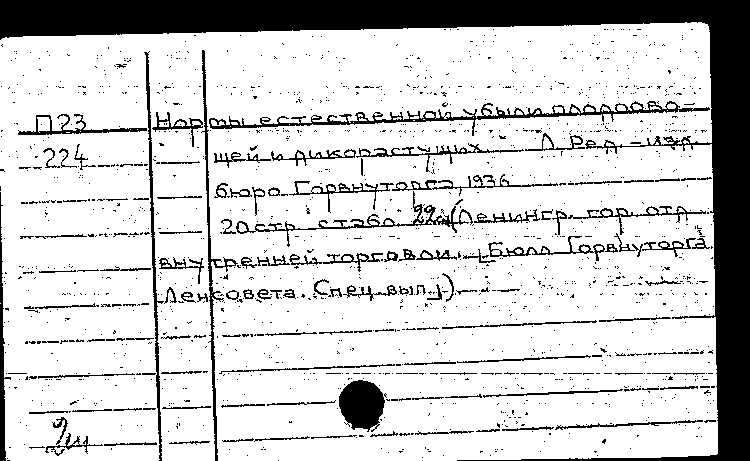 П23 Нормы естественной убыли плодоово-
224 щей и дикорастущих. Л, Ред.-изд.
бюро Горвнуторга, 1936
20 стр. с табл. 22см (Ленингр. гор. отд
внутренней торговли. Бюлл Горвнуторга
Ленсовета. Спец. вып.)